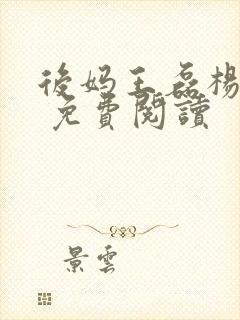 後妈王磊楊
免費閱讀
景雲